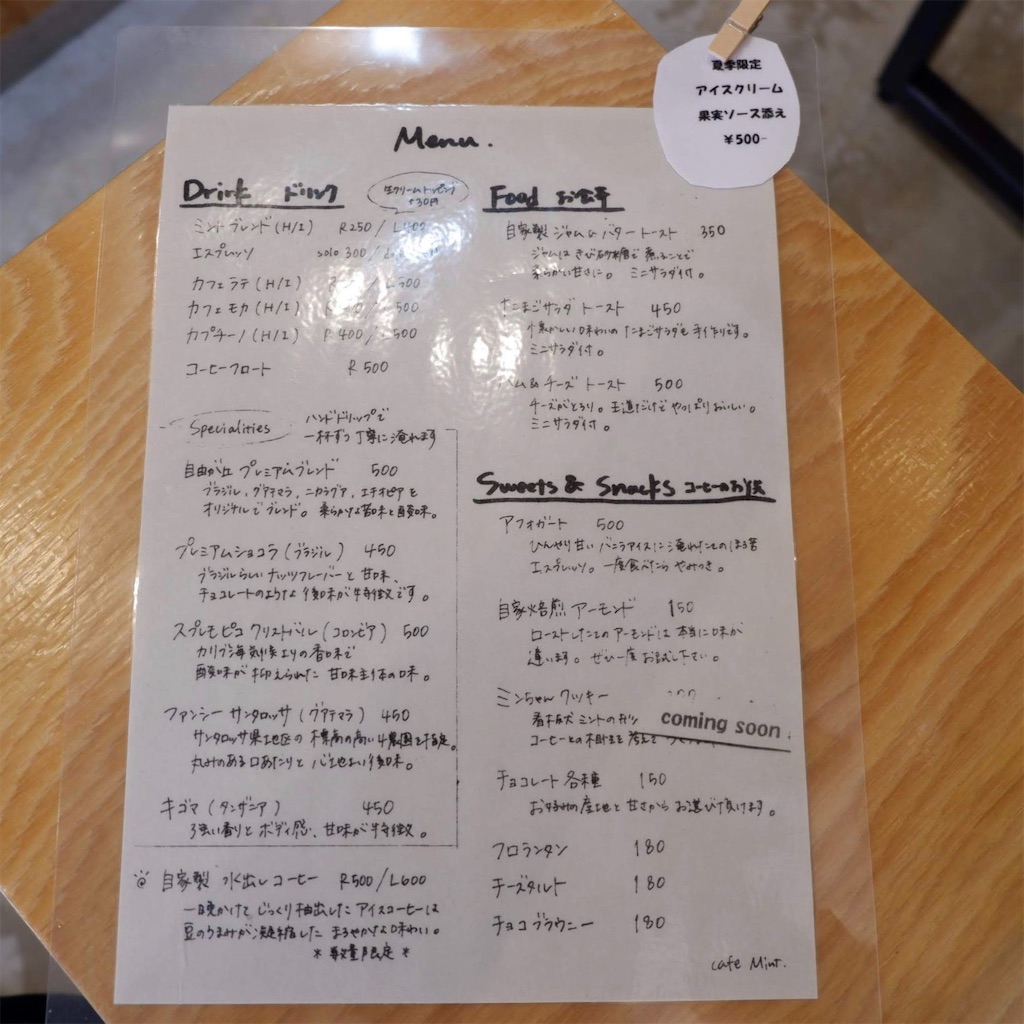 夏季限定
アイスクリーム
果実ソース添え
¥500-
Menu.
Drink ドリンク
生クリームトッピング
+30円
ミントブレンド(H/I) R250/L400
エスプレッソ solo 300/
カフェラテ(H/I) L500
カフェモカ(H/I) 500
カプチーノ(H/I) R400/L500
コーヒーフロート R500
Specialities
ハンドドリップで
一杯ずつ丁寧に淹れます
自由が丘 プレミアムブレンド 500
ブラジル、グアテマラ、ニカラグア、エチオピアを
オリジナルでブレンド。柔らかな苦味と酸味。
プレミアムショコラ(ブラジル) 450
ブラジルらしいナッツフレーバーと甘味、
チョコレートのような後味が特徴です。
スプレモ ピコ クリストバル(コロンビア) 500
カリブ海気候よりの香味で
酸味が抑えられた 甘味主体の味。
ファンシー サンタロッサ(グアテマラ) 450
サンタロッサ県地区の標高の高い4農園を指定。
丸みのある口あたりと 心地よい後味。
キゴマ(タンザニア) 450
強い香りとボディ感、甘味が特徴。
自家製 水出しコーヒー R500/L600
一晩かけてじっくり抽出したアイスコーヒーは
豆のうまみが凝縮した まろやかな味わい。
*数量限定*
Food お食事
自家製ジャム&バタートースト 350
ジャムはきび砂糖で煮ることで
柔らかい甘さに。 ミニサラダ付。
たまごサラダ トースト 450
懐かしい味わいの たまごサラダも手作りです。
ミニサラダ付。
ハム&チーズ トースト 500
チーズがとろり。王道だけど やっぱりおいしい。
ミニサラダ付。
Sweets & Snacks コーヒーのお供
アフォガート 500
ひんやり甘い バニラアイスに 淹れたてのほろ苦
エスプレッソ。一度食べたら やみつき。
自家焙煎 アーモンド 150
ローストしたてのアーモンドは 本当に味が
違います。ぜひ一度お試し下さい。
ミンちゃんクッキー
看板犬 ミントの
コーヒーとの相性を考えて
coming soon
チョコレート各種 150
お好みの産地と 甘さから お選び頂けます。
フロランタン 180
チーズタルト 180
チョコブラウニー 180
cafe Mint.